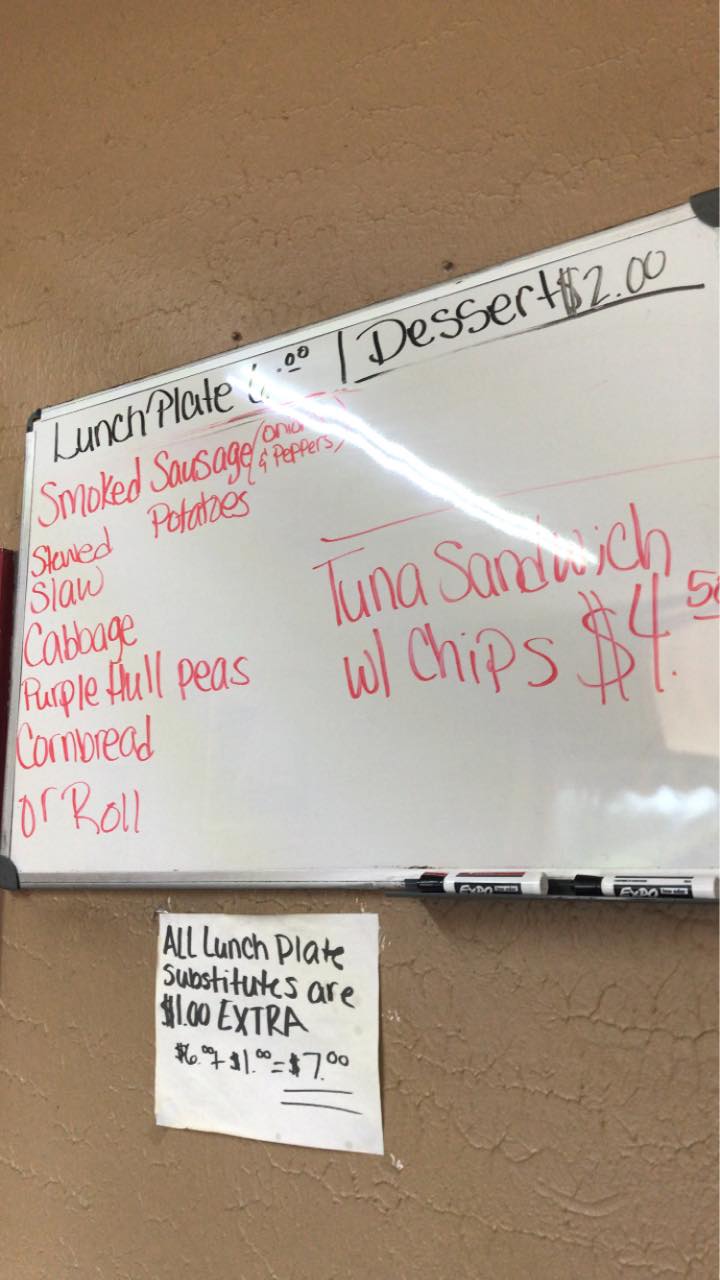 Lunch Plate 6.00 | Dessert $2.00
Smoked Sausage (onions
& Peppers)
Stewed Potatoes
Slaw
Cabbage
Purple Hull peas
Cornbread
or Roll
Tuna Sandwich
w/ Chips $4.50
EXPO
EXPO
ALL Lunch Plate
Substitutes are
$1.00 EXTRA
$6.00 + $1.00 = $7.00